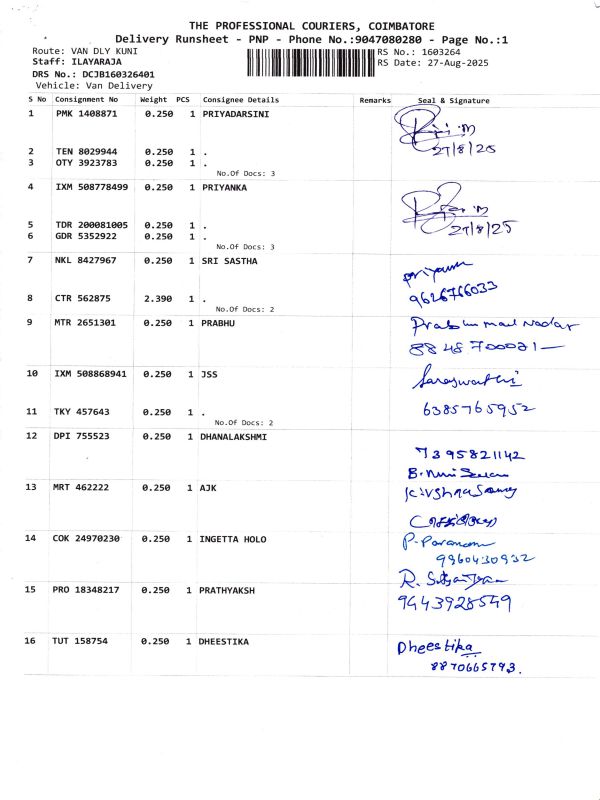 THE PROFESSIONAL COURIERS, COIMBATORE
Delivery Runsheet - PNP - Phone No.:9047080280 - Page No.:1
Route: VAN DLY KUNI RS No.: 1603264
Staff: ILAYARAJA RS Date: 27-Aug-2025
DRS No.: DCJB160326401
Vehicle: Van Delivery
S No Consignment No Weight PCS Consignee Details Remarks Seal & Signature
1 PMK 1408871 0.250 1 PRIYADARSINI
2 TEN 8029944 0.250 1 . 27/8/25
3 OTY 3923783 0.250 1 .
No.Of Docs: 3
4 IXM 508778499 0.250 1 PRIYANKA
5 TDR 200081005 0.250 1 . 27/8/25
6 GDR 5352922 0.250 1 .
No.Of Docs: 3
7 NKL 8427967 0.250 1 SRI SASTHA
8 CTR 562875 2.390 1 . 9626766033
No.Of Docs: 2
9 MTR 2651301 0.250 1 PRABHU
10 IXM 508868941 0.250 1 JSS Saraswathi
11 TKY 457643 0.250 1 . 6385765952
No.Of Docs: 2
12 DPI 755523 0.250 1 DHANALAKSHMI
7395821142
13 MRT 462222 0.250 1 AJK
14 COK 24970230 0.250 1 INGETTA HOLO
9960430932
15 PRO 18348217 0.250 1 PRATHYAKSH
9443928549
16 TUT 158754 0.250 1 DHEESTIKA Dheestika
8870665793.